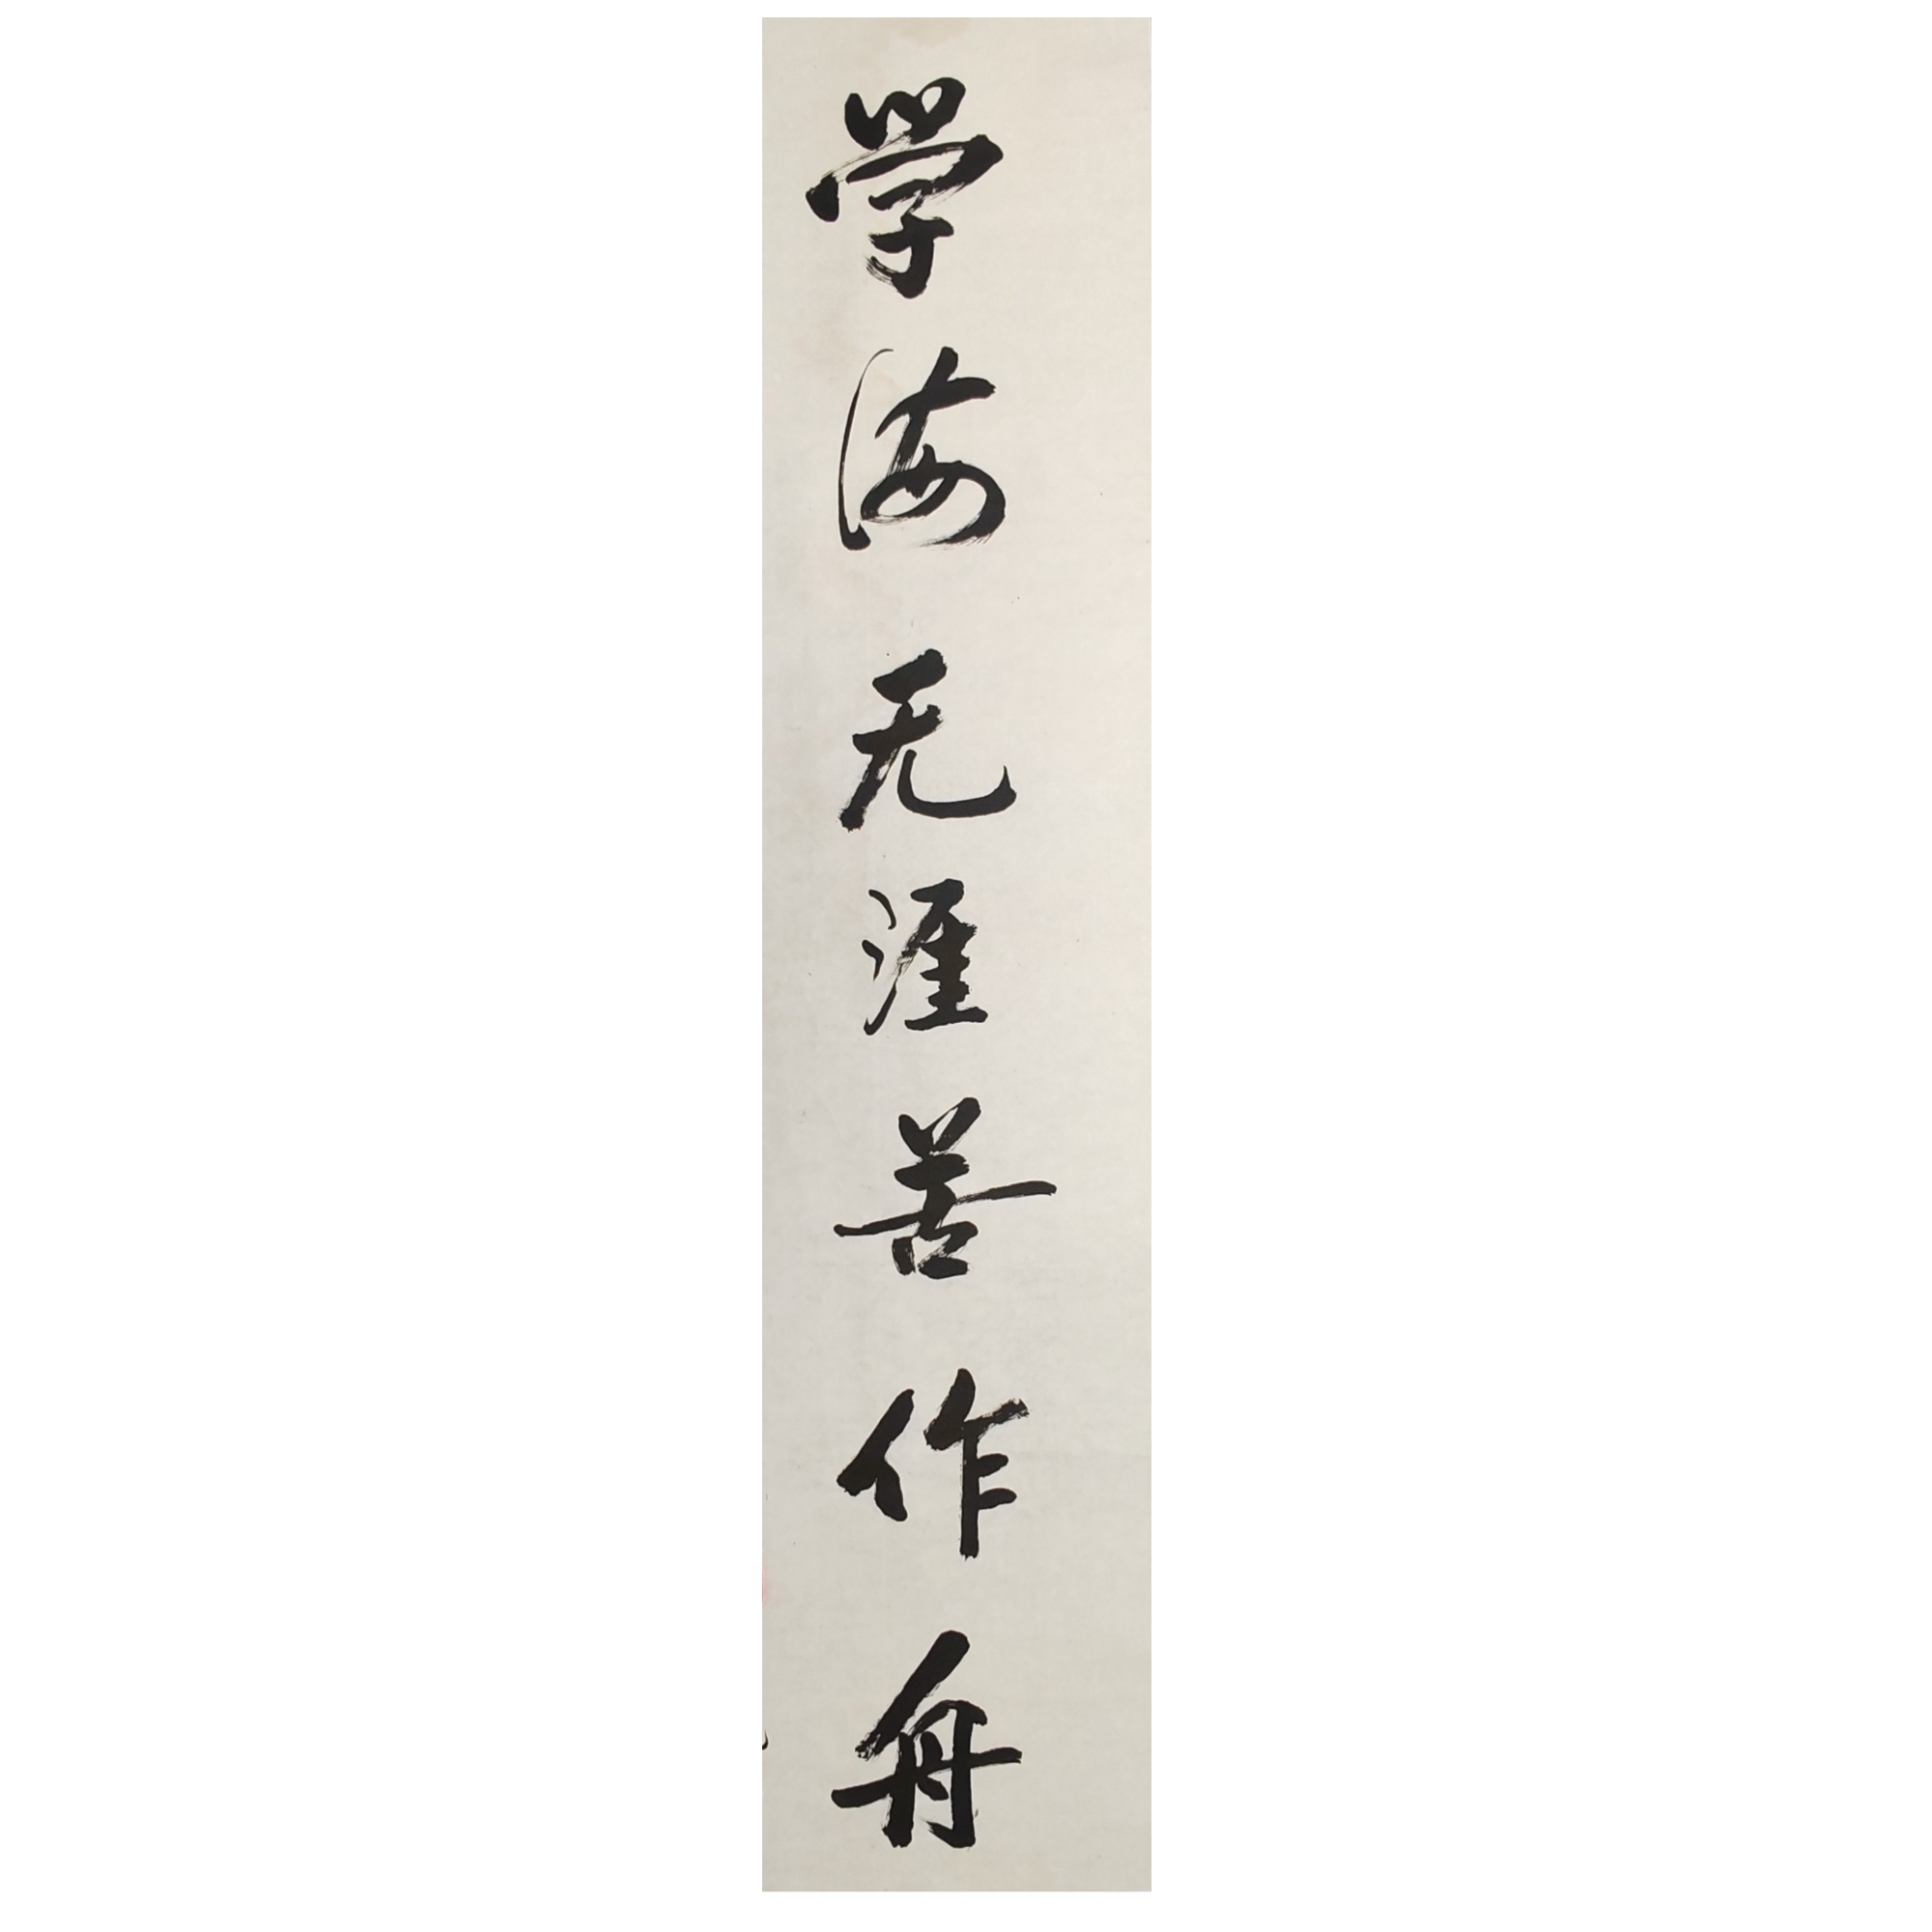 学海无涯苦作舟